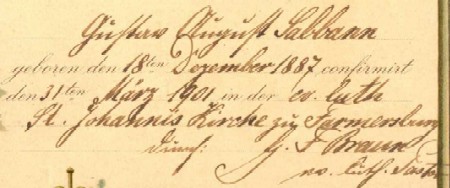 Gustav August Sabbann
geboren den 18ten Dezember 1887 confirmirt
den 31ten März 1901 in der ev. luth
St. Johannis Kirche zu Farmersburg
durch: J. F. Braun
ev. luth. Pastor